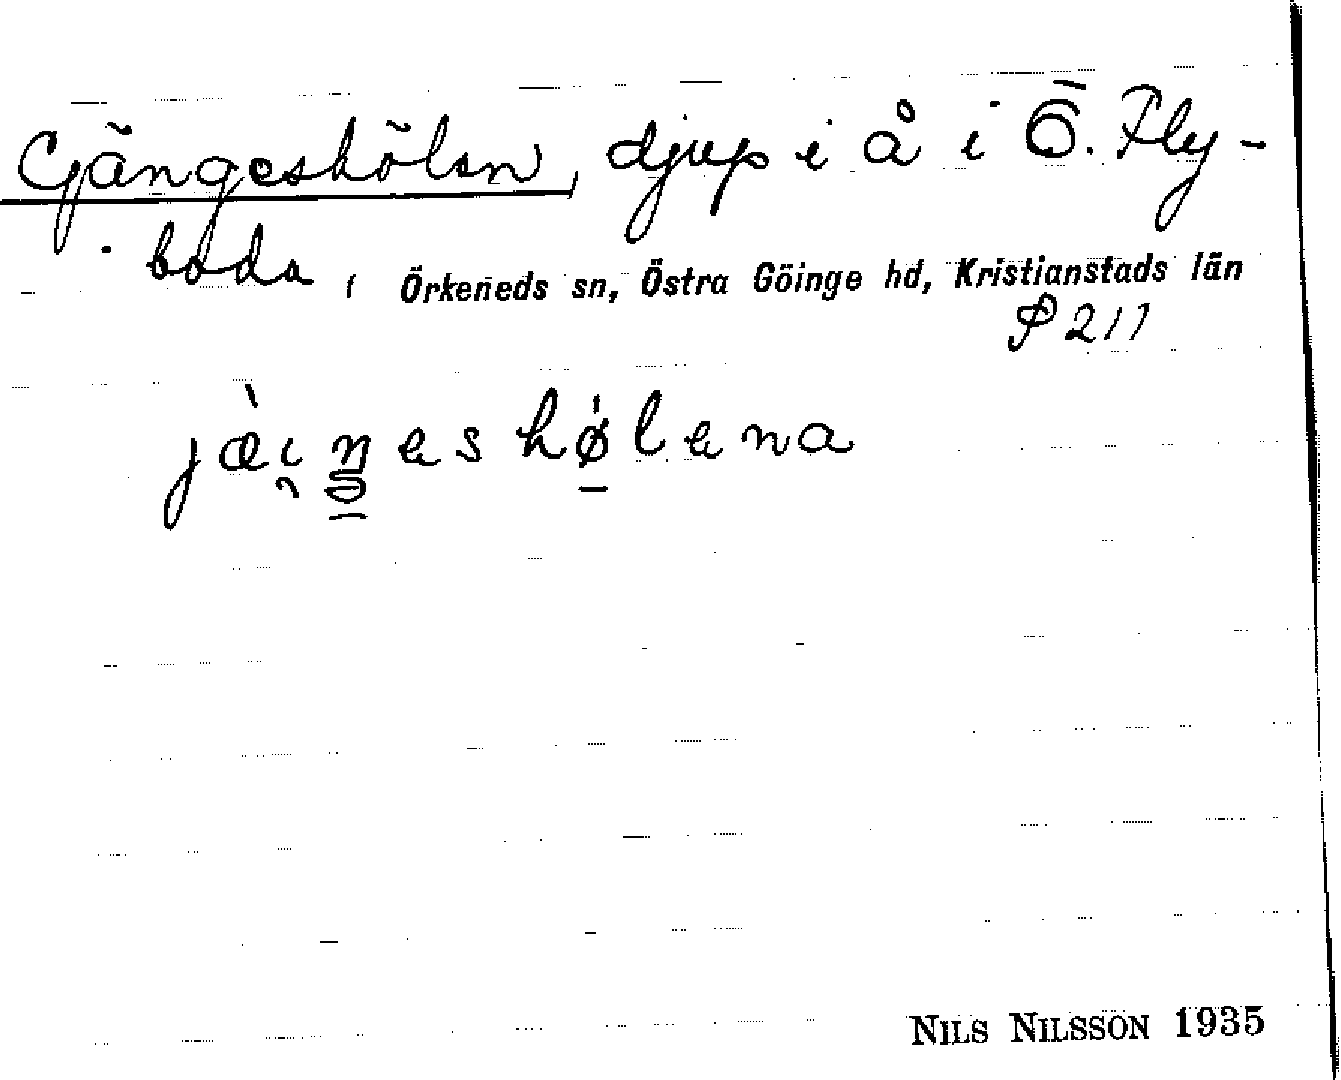 Gängeshölen, djup i å i Ö. Fly-
boda, Örkeneds sn, Östra Göinge hd, Kristianstads län
P 211
NILS NILSSON 1935